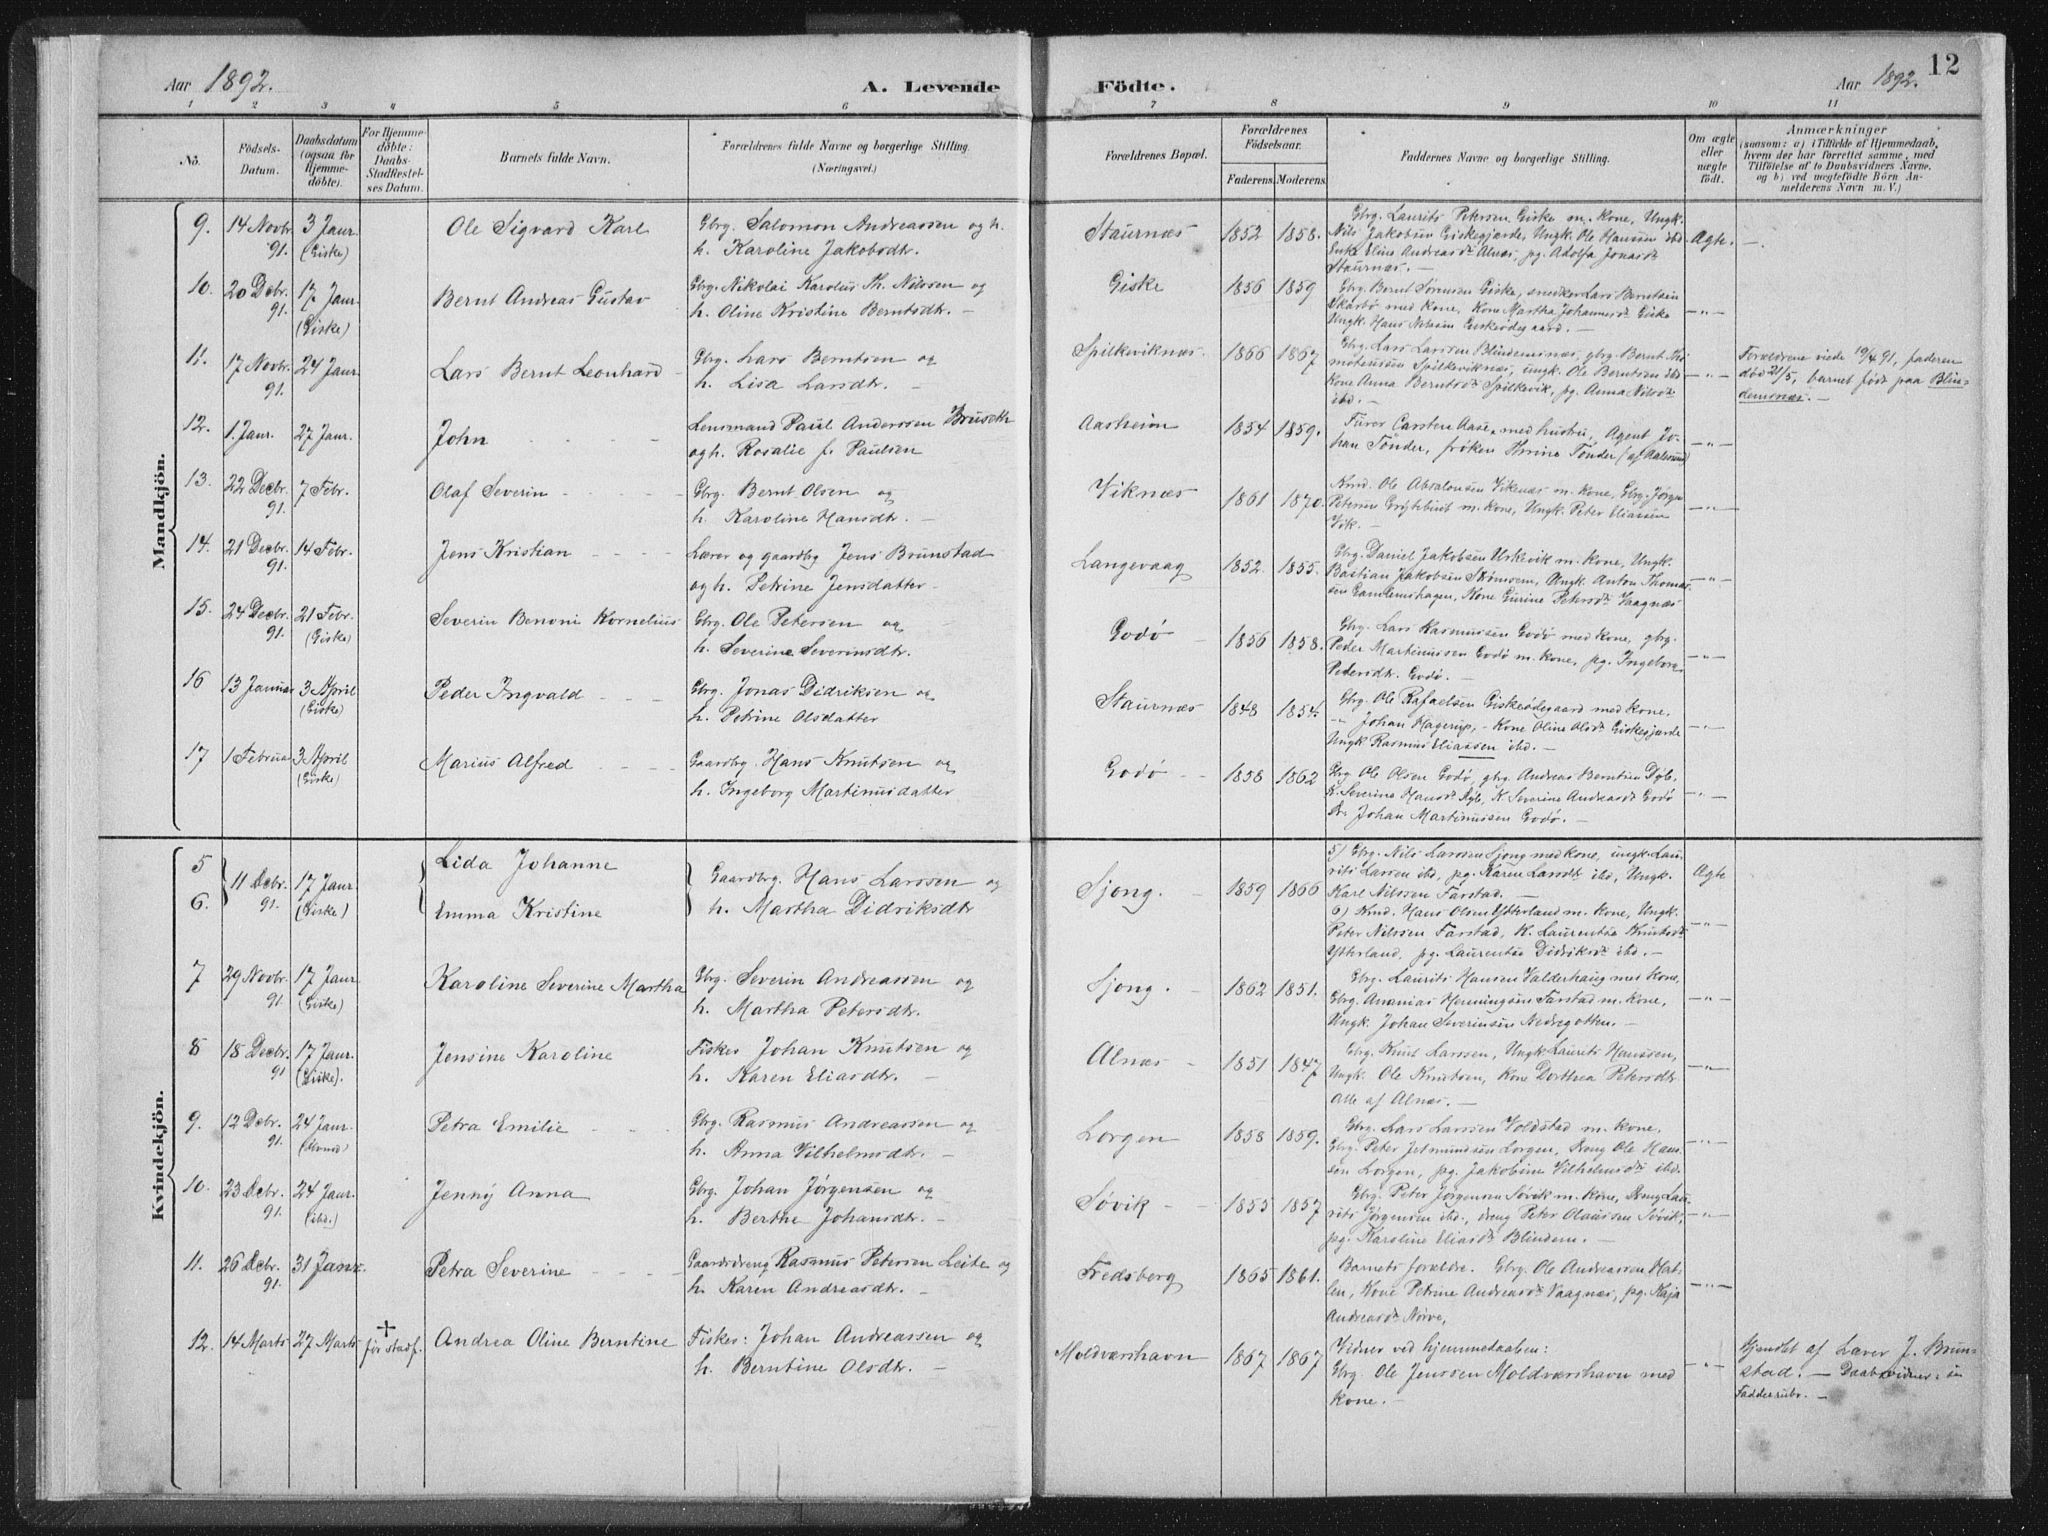 Aar 1892.
A. Levende
Födte.
Aar 1892.
12
1 2 3 4 5 6 7 8 9 10 11
Nö.
Födsels-
Datum.
Daabsdatum
(ogsaa for
Hjemme-
döbte).
For Hjemme-
döbte:
Daabs-
Stadfæstel-
ses Datum.
Barnets fulde Navn.
Forældrenes fulde Navne og borgerlige Stilling.
(Næringsvei.)
Forældrenes Bopæl.
Forældrenes
Födselsaar.
Faderens.
Moderens.
Faddernes Navne og borgerlige Stilling.
Om ægte
eller
uægte
födt.
Anmærkninger
(saasom: a) i Tilfælde af Hjemmedaab,
hvem der har forrettet samme, med
Tilföielse af to Daabsvidners Navne,
og b) ved uægtefödte Börn An-
melderens Navn m. V.)
Mandkjön.
9. 14 Novbr. 91. 3 Janr. (Giske)
Ole Sigvard Karl
Gbrg. Salomon Andreassen og h.
h. Karoline Jakobsdtr.
Staurnæs 1852 1858.
Gbrg. Laurits Petersen Giske m. kone, Ungk.
Nils Jakobsen Giskegjærde, Ungk. Ole Hanssen ibd
Enke Eline Andreasdr Alnæs, pg. Adolfa Jonasdr
Staurnæs. —
Ægte. —
10. 20 Debr. 91. 17 Janr. (Giske)
Bernt Andreas Gustav
Gbrg. Nikolai Karolus Th. Nilssen og
h. Oline Kristine Berntsdtr. —
Giske 1856 1859
Gbrg. Bernt Sørensen Giske, snedker Lars Berntsen
Skarbø med kone, Kone Martha Johannesdr Giske
Ungk. Hans Nilssen Giskeødegaard. —
—„—
11. 17 Novbr. 91. 24 Janr.
Lars Bernt Leonhard
Gbrg. Lars Berntsen og
h. Lisa Larsdtr. —
Spilkeviknæs. 1866 1867
Gbrg. Lars Larssen Blindemsnæs, gbrg. Bernt Thi
moteussen Spilkeviknæs, ungk. Ole Berntsen ibd
Kone Anna Berntsdr Spilkevik, pg. Anna Nilsdr
ibd. —
—„—
Forældrene viede 19/4 91, faderen
död 21/5, barnet født paa Blin-
demsnæs. —
12. 1. Janr. 27 Janr.
John
Lensmand Paul Anderssen Bruseth
og h. Rosalie f. Paulsen
Aasheim 1854 1859.
Fürer Carsten Aase, med hustru, Agent Jo-
han Tönder, frøken Thrine Tönder (af Aalesund)
—„—
13. 22 Decbr. 91. 7 Febr.
Olaf Severin
Gbrg. Bernt Olsen og
h. Karoline Hansdtr. —
Viknæs 1861 1870.
Kmd. Ole Absalonsen Viknæs m. kone, Gbrg. Jørgen
Petersen m. kone, Ungk. Peter Eliassen
Vik. —
—„—
14. 21 Decbr. 91. 14 Febr.
Jens Kristian
Lærer og gaardbrg Jens Brunstad
og h. Petrine Jensdatter —
Langevaag 1852. 1855.
Gbrg. Daniel Jakobsen m. kone, Ungk.
Bastian Jakobsen , Ungk. Anton Thomas-
sen Gamlemshagen, Kone Gurine Petersdr Vaagnæs
—„—
15. 24 Decbr. 91. 21 Febr. (Giske)
Severin Benoni Kornelius
Gbrg. Ole Petersen og
h. Severine Severinsdtr.
Godø 1856 1858.
Gbrg. Lars Rasmussen Godø med kone, gbrg.
Peder Martinussen Godø m. kone, pg. Ingeborg
Petersdtr. Godø. —
—„—
16 13 Januar 3 April (Giske)
Peder Ingvald
Gbrg. Jonas Didriksen og
h. Petrine Olsdatter
Staurnæs 1848 1854.
Gbrg. Ole Rafaelsen Giskeødegaard med kone.
„ Johan Hagerup, - Kone Oline Olsdr Giskegjærde
Ungk Rasmus Eliassen ibd. —
—„—
17 1 Februar 3 April (Giske)
Marius Alfred
Gaardbrg. Hans Knutsen og
h. Ingeborg Martinusdatter
Godø 1858 1862
Gbrg Ole Olsen Godø, gbrg. Andreas Berntsen Dyb.
K. Severine Hansdr Dyb, K. Severine Andreasdr Godø
Dr. Johan Martinussen Godø. —
—„—
Kvindekjön.
5 11 Debr. 91. 17 Janr. (Giske)
6.
Lida Johanne
Emma Kristine
Gaardbrg. Hans Larssen og
h. Martha Didriksdtr
Sjong. 1859 1866
5) Gbrg. Nils Larssen Sjong med kone, ungk. Lau-
rits Larsen ibd, pg. Karen Larsdr ibd, Ungk.
Karl Nilssen Farstad. —
Ægte
6) Kmd. Hans Olsen Ytterland m. kone, Ungk.
Peter Nilssen Farstad, K. Laurentse Knutsdr
Ytterland, pg. Laurentse Didriksdr ibd. —
—„—
7 29 Novbr. 91. 17 Janr. (Giske)
Karoline Severine Martha
Gbrg. Severin Andreassen og
h. Martha Petersdtr.
Sjong. 1862 1851.
Gbrg. Laurits Hansen Valderhaug med kone,
Gbrg. Ananias Henningsen Farstad m. kone,
Ungk. Johan Severinsen Nedregotten. —
—„—
8 18 Decbr. 91 17 Janr. (Giske).
Jensine Karoline
Fisker Johan Knutsen og
h. Karen Eliasdtr. —
Alnæs 1851 1847
Gbrg. Knut Larssen, Ungk Laurits Hanssen,
Ungk. Ole Knutsen, Kone Dorthea Petersdtr
alle af Alnæs. —
—„—
9. 12 Debr. 91. 24 Janr.
Petra Emilie
Gbrg. Rasmus Andreassen og
h. Anna Vilhelmsdtr. —
Lorgen 1858 1859.
Gbrg. Lars Larssen Voldstad m. kone.
Gbrg. Peter Jetmundsen Lorgen, Dreng Ole Han-
sen Lorgen, pg. Jakobine Vilhelmsdr ibd.
—„—
10. 23 Debr. 91. 24 Janr. (ibd.)
Jenny Anna
Gbrg. Johan Jørgensen og
h. Berthe Johansdtr. —
Søvik 1855 1857
Gbrg. Peter Jørgensen Søvik m. kone, Dreng Lau-
rits Jørgensen ibd., dreng Peter Olaussen Søvik,
pg. Karoline Eliasdr Blindem. —
—„—
11. 26 Debr. 91. 31 Janr.
Petra Severine
Gaardsdreng Rasmus Petersen Leite og
h. Karen Andreasdtr. —
Fredsberg 1865 1861.
Barnets forældre. Gbrg. Ole Andreassen Hat-
len, Kone Petrine Andreasdr Vaagnæs, pg. Kaja
Andreasdr Nörve,
—„—
12. 14 Marts 27 Marts † før stadf.
Andrea Oline Berntine
Fisker: Johan Andreassen og
h. Berntine Olsdtr. —
Moldværshavn 1867 1867
Vidner ved hjemmedaaben:
Gbrg. Ole Jenssen Moldværshavn med
kone. —
—„—
Hjemdöbt af Lærer J. Brun-
stad. — Daabsvidner: se
Fadderrubr. —